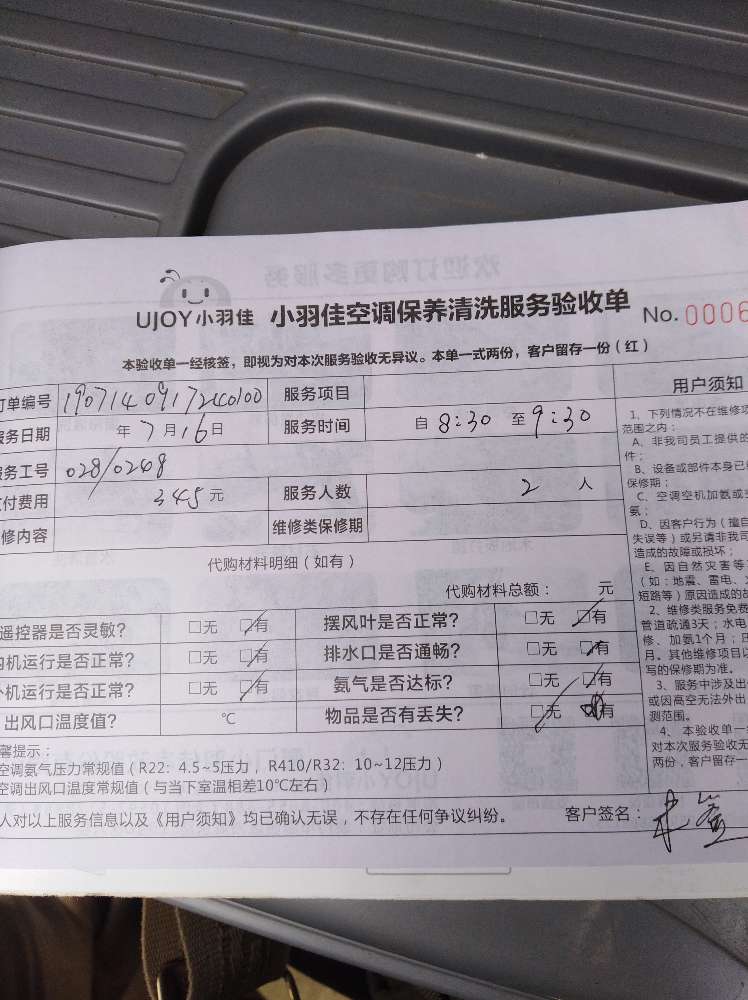 UJOY小羽佳 小羽佳空调保养清洗服务验收单 No. 0006
本验收单一经核签，即视为对本次服务验收无异议。本单一式两份，客户留存一份（红）
订单编号 服务项目 用户须知
服务日期 年7月16日 服务时间 自 8:30 至 9:30
服务工号 028/0248
支付费用 345元 服务人数 2 人
维修内容 维修类保修期
代购材料明细（如有）
代购材料总额： 元
遥控器是否灵敏？ □无 □有 摆风叶是否正常？ □无 □有
内机运行是否正常？ □无 □有 排水口是否通畅？ □无 □有
外机运行是否正常？ □无 □有 氨气是否达标？ □无 □有
出风口温度值？ ℃ 物品是否有丢失？ □无 □有
温馨提示：
空调氨气压力常规值（R22：4.5~5压力，R410/R32：10~12压力）
空调出风口温度常规值（与当下室温相差10℃左右）
本人对以上服务信息以及《用户须知》均已确认无误，不存在任何争议纠纷。 客户签名：
1、下列情况不在维修项
范围之内：
A、非我司员工提供的
件；
B、设备或部件本身已
保修期；
C、空调空机加氨或
氨；
D、因客户行为（撞自
失误等）或另请非我司
造成的故障或损坏；
E、因自然灾害等
（如：地震、雷电、
短路等）原因造成的故
2、维修类服务免费
管道疏通3天；水电
修、加氨1个月；
月。其他维修项目以
写的保修期为准。
3、服务中涉及出
或因高空无法外出
测范围。
4、本验收单一
对本次服务验收无
两份，客户留存一